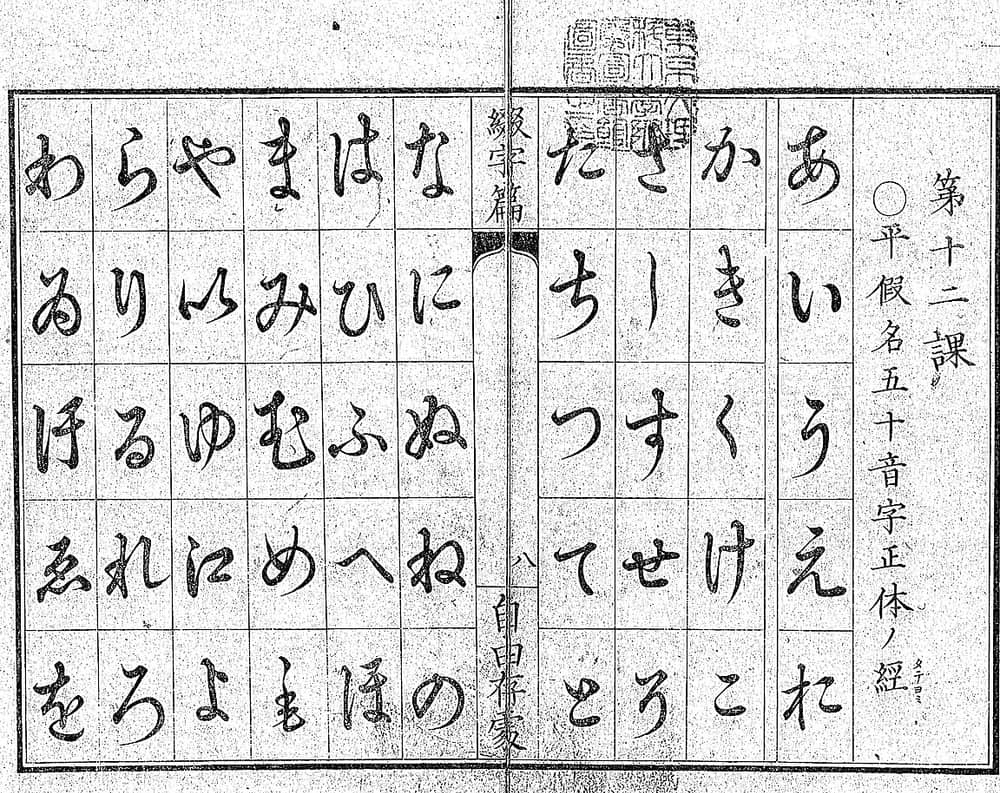 第十二課
〇平假名五十音字正体ノ經
タテヨミ
あいうえお
かきくけこ
さしすせそ
たちつてと
綴字篇
八
自由存家
なにぬねの
はひふへほ
まみむめも
や以ゆ江よ
らりるれろ
わゐ汙ゑを